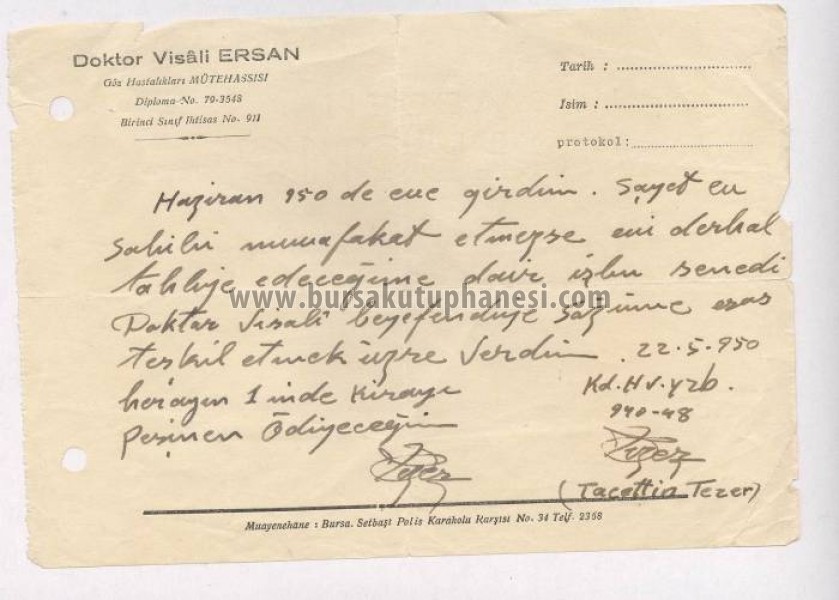 Doktor Visâli ERSAN
Göz Hastalıkları MÜTEHASSISI
Diploma No. 79-3548
Birinci Sınıf İhtisas No. 911
Tarih :
İsim :
protokol:
Haziran 950 de eve girdim. Şayet ev
sahibi muvafakat etmezse evi derhal
tahliye edeceğime dair işbu senedi
www.bursakutuphanesi.com
Doktor Visali beyefendiye sözüme esas
teşkil etmek üzre verdim. 22.5.950
her ayın 1 inde kirayı
Kd. Hv. yzb.
940-48
peşinen ödiyeceğim
Tezer
Tezer
(Tacettin Tezer)
Muayenehane : Bursa. Setbaşı Polis Karakolu Karşısı No. 34 Telf. 2368